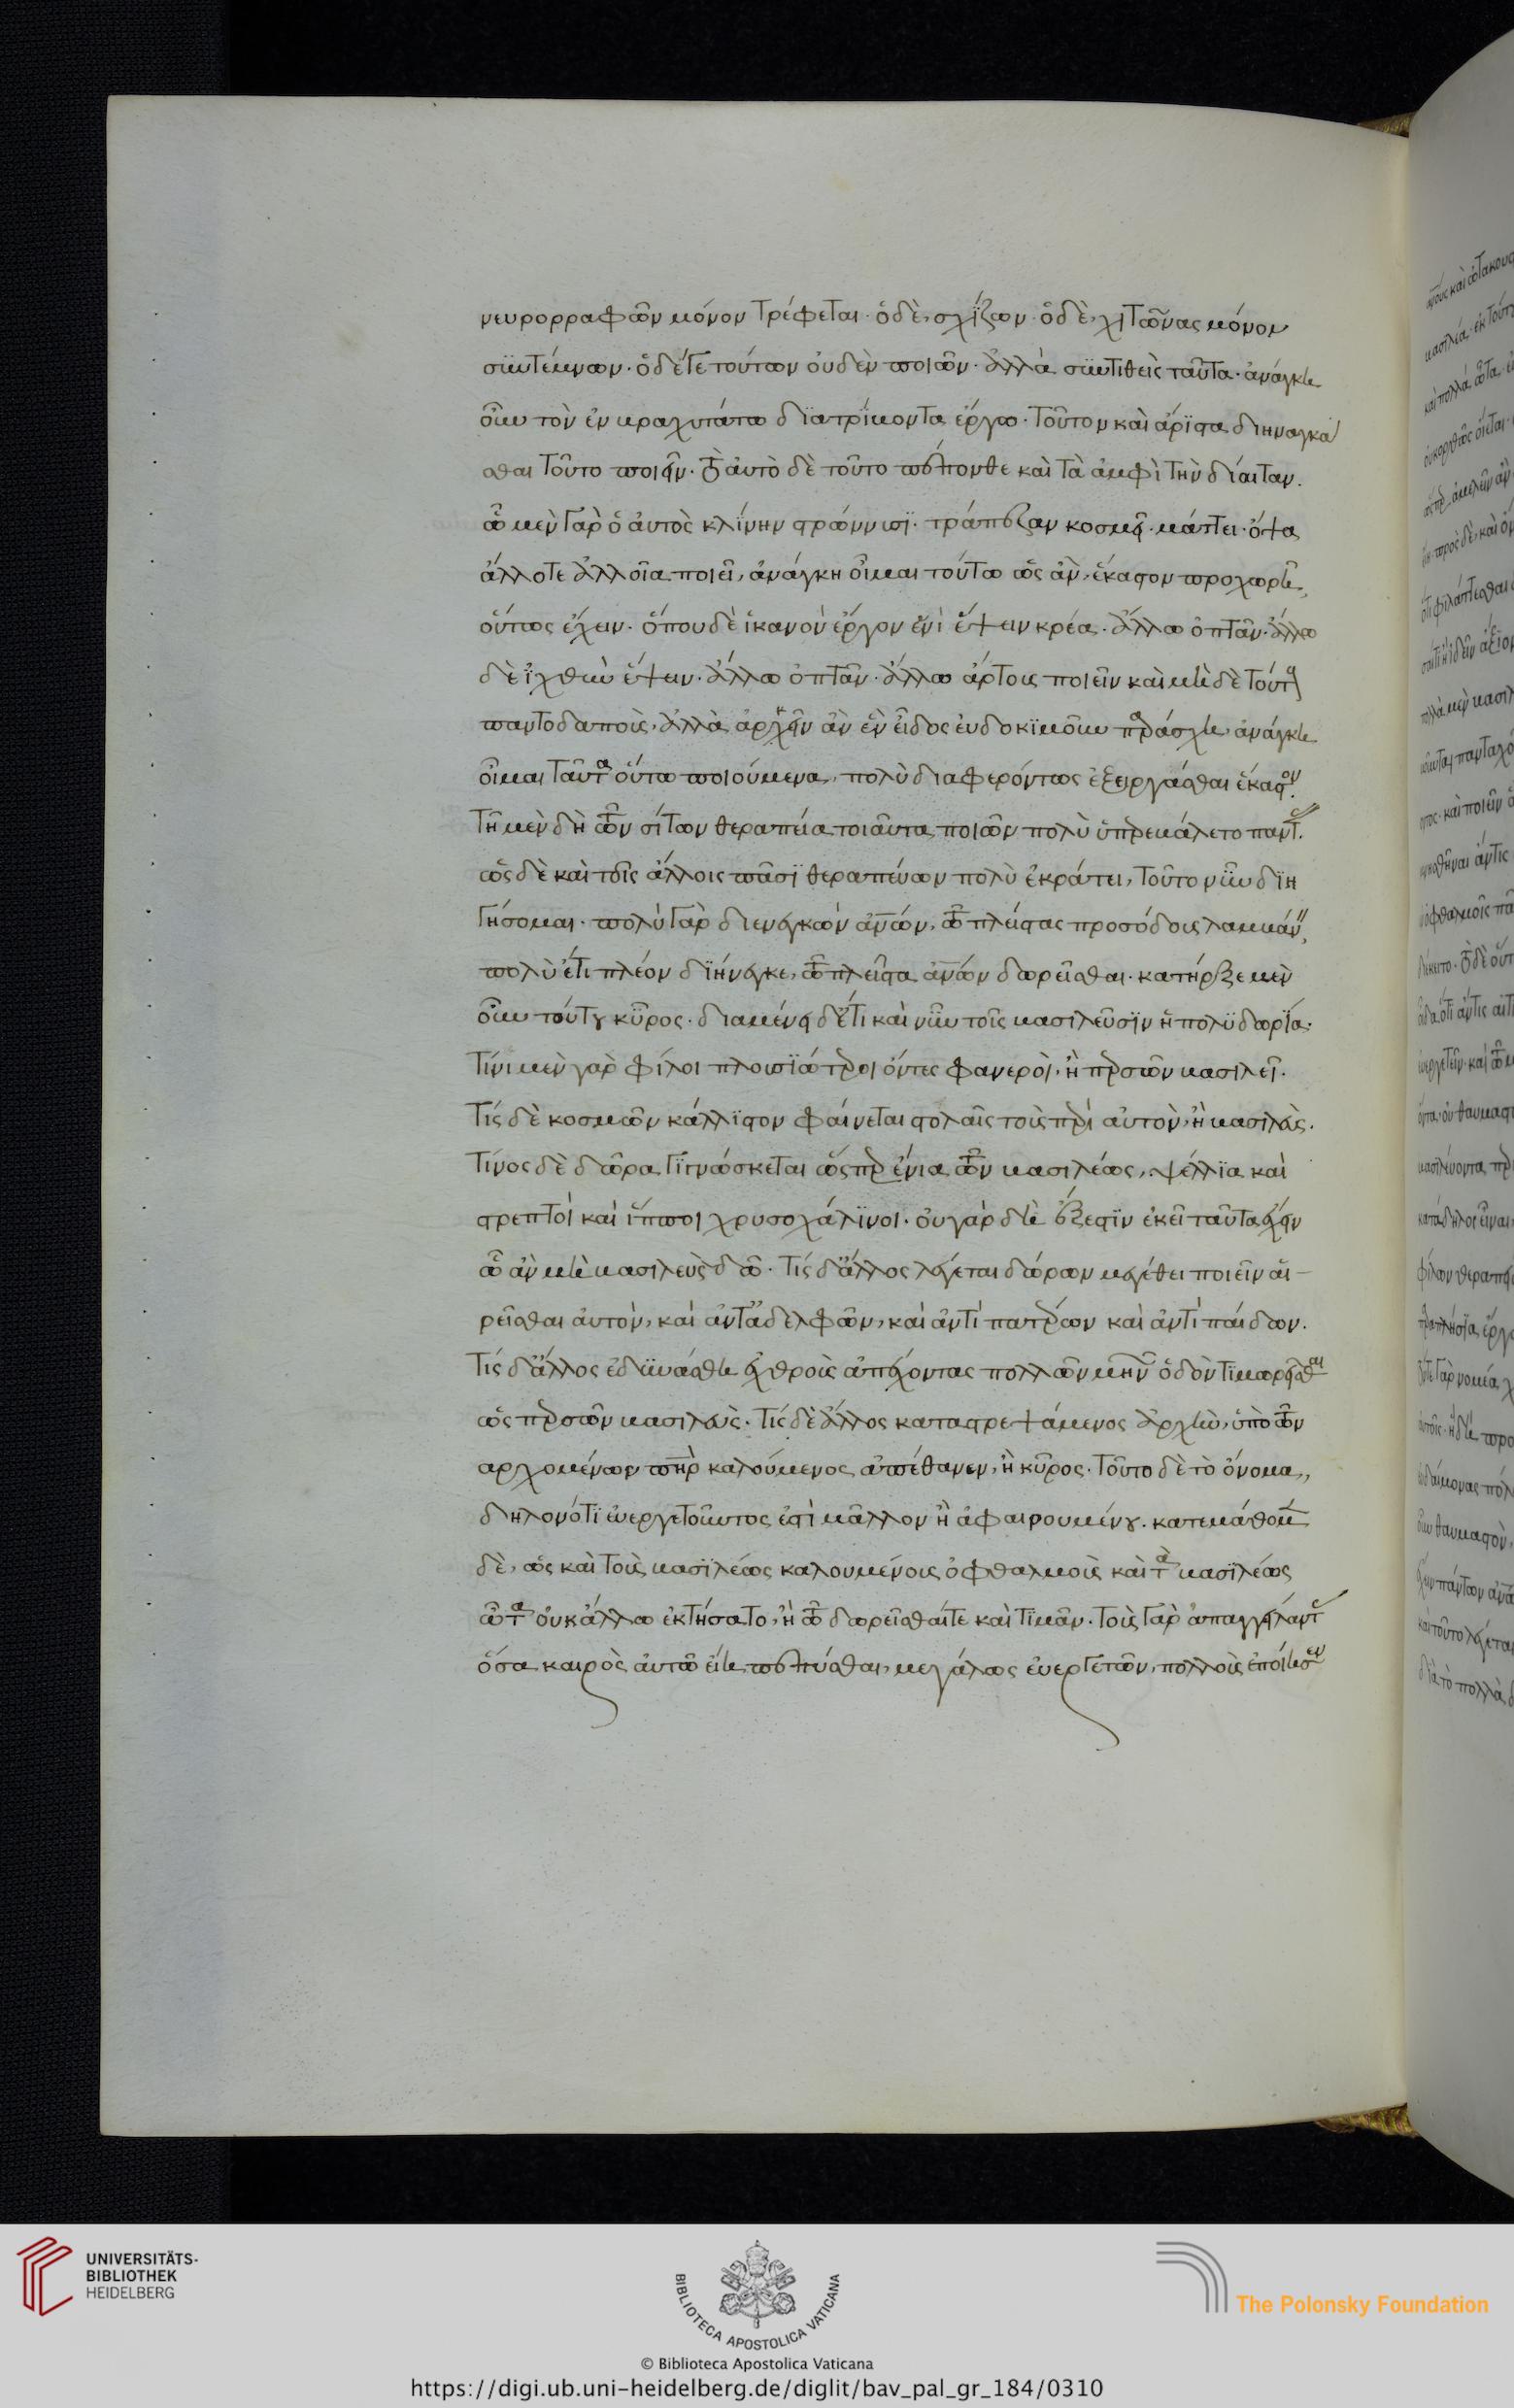 νευρορραφῶν μόνον τρέφεται· ὁ δὲ, σχίζων· ὁ δὲ, χιτῶνας μόνον
συντέμνων· ὁ δέ γε τούτων οὐδὲν ποιῶν· ἀλλὰ συντιθεὶς ταῦτα· ἀνάγκη
οὖν τὸν ἐν βραχυτάτω διατρίβοντα ἔργω· τοῦτον καὶ ἄριστα διηναγκά
σθαι τοῦτο ποιεῖν· τὸ αὐτὸ δὲ τοῦτο πέπονθε καὶ τὰ ἀμφὶ τὴν δίαιταν.
ὧ μὲν γὰρ ὁ αὐτὸς κλίνην στρώννυσι· τράπεζαν κοσμεῖ· μάττει· ὄψα
ἄλλοτε ἀλλοῖα ποιεῖ, ἀνάγκη οἶμαι τούτω ὡς ἂν, ἕκαστον προχωρῆ,
οὕτως ἔχειν· ὅπου δὲ ἱκανὸν ἔργον ἑνὶ ἕψειν κρέα· ἄλλω ὀπτᾶν· ἄλλω
δὲ ἰχθὺν ἕψειν· ἄλλω ὀπτᾶν· ἄλλω ἄρτους ποιεῖν καὶ μὴ δὲ τούτους
παντοδαποὺς, ἀλλὰ ἀρκεῖν ἂν ἓν εἶδος εὐδοκιμοῦν παράσχη, ἀνάγκη
οἶμαι ταῦτα οὕτω ποιούμενα, πολὺ διαφερόντως ἐξειργάσθαι ἕκαστον.
τῆ μὲν δὴ τῶν σίτων θεραπεία τοιαῦτα ποιῶν πολὺ ὑπερεβάλετο πάντας.
ὡς δὲ καὶ τοῖς ἄλλοις πᾶσι θεραπεύων πολὺ ἐκράτει, τοῦτο νῦν διη
γήσομαι· πολὺ γὰρ διενεγκὼν ἀνων, τῶ πλείστας προσόδους λαμβάνειν,
πολὺ ἔτι πλέον διήνεγκε, τῶ πλεῖστα ἀνων δωρεῖσθαι· κατῆρξε μὲν
οὖν τούτου κῦρος· διαμένει δ' ἔτι καὶ νῦν τοῖς βασιλεῦσιν ἡ πολυδωρία·
τίνι μὲν γὰρ φίλοι πλουσιώτεροι ὄντες φανεροὶ, ἢ περσῶν βασιλεῖ·
τίς δὲ κοσμῶν κάλλιον φαίνεται στολαῖς τοὺς περὶ αὐτὸν, ἢ βασιλεύς·
τίνος δὲ δῶρα γιγνώσκεται ὥσπερ ἔνια τῶν βασιλέως, ψέλλια καὶ
στρεπτοὶ καὶ ἵπποι χρυσοχάλινοι· οὐ γὰρ δὴ ἔξεστιν ἐκεῖ ταῦτα ἔχειν
ὧ ἂν μὴ βασιλεὺς δῶ· τίς δ' ἄλλος λέγεται δώρων μεγέθει ποιεῖν αἱ-
ρεῖσθαι αὐτὸν, καὶ ἀντ' ἀδελφῶν, καὶ ἀντὶ πατέρων καὶ ἀντὶ παίδων.
τίς δ' ἄλλος ἐδυνάσθη ἐχθροὺς ἀπέχοντας πολλῶν μηνῶν ὁδὸν τιμωρεῖσθαι
ὡς περσῶν βασιλεύς· τίς δὲ ἄλλος καταστρεψάμενος ἀρχὴν, ὑπὸ τῶν
ἀρχομένων πὴρ καλούμενος ἀπέθανεν, ἢ κῦρος· τοῦτο δὲ τὸ ὄνομα,
δηλονότι εὐεργετοῦντος ἐστὶ μᾶλλον ἢ ἀφαιρουμένου. κατεμάθομεν
δὲ, ὡς καὶ τοὺς βασιλέως καλουμένους ὀφθαλμοὺς καὶ τὰ βασιλέως
ὦτα οὐκ ἄλλω ἐκτήσατο, ἢ τῶ δωρεῖσθαί τε καὶ τιμᾶν· τοὺς γὰρ ἀπαγγείλαντας
ὅσα καιρὸς αὐτῶ εἴη πεπύσθαι, μεγάλως εὐεργετῶν, πολλοὺς ἐποίησεν
UNIVERSITÄTS-
BIBLIOTHEK
HEIDELBERG
BIBLIOTECA APOSTOLICA VATICANA
The Polonsky Foundation
© Biblioteca Apostolica Vaticana
https://digi.ub.uni-heidelberg.de/diglit/bav_pal_gr_184/0310